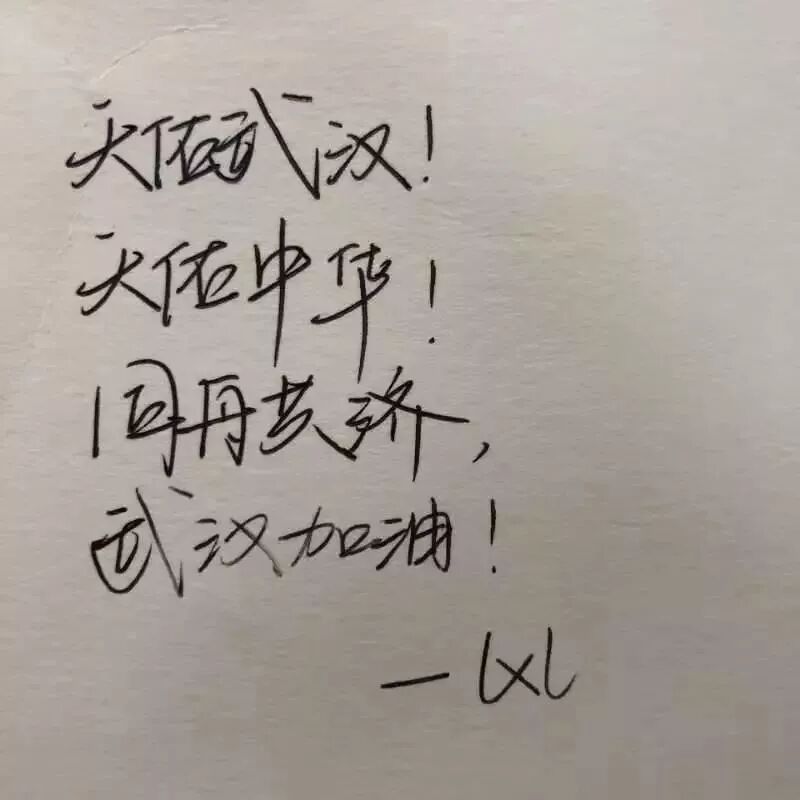 天佑武汉！
天佑中华！
同舟共济，
武汉加油！
— lxl